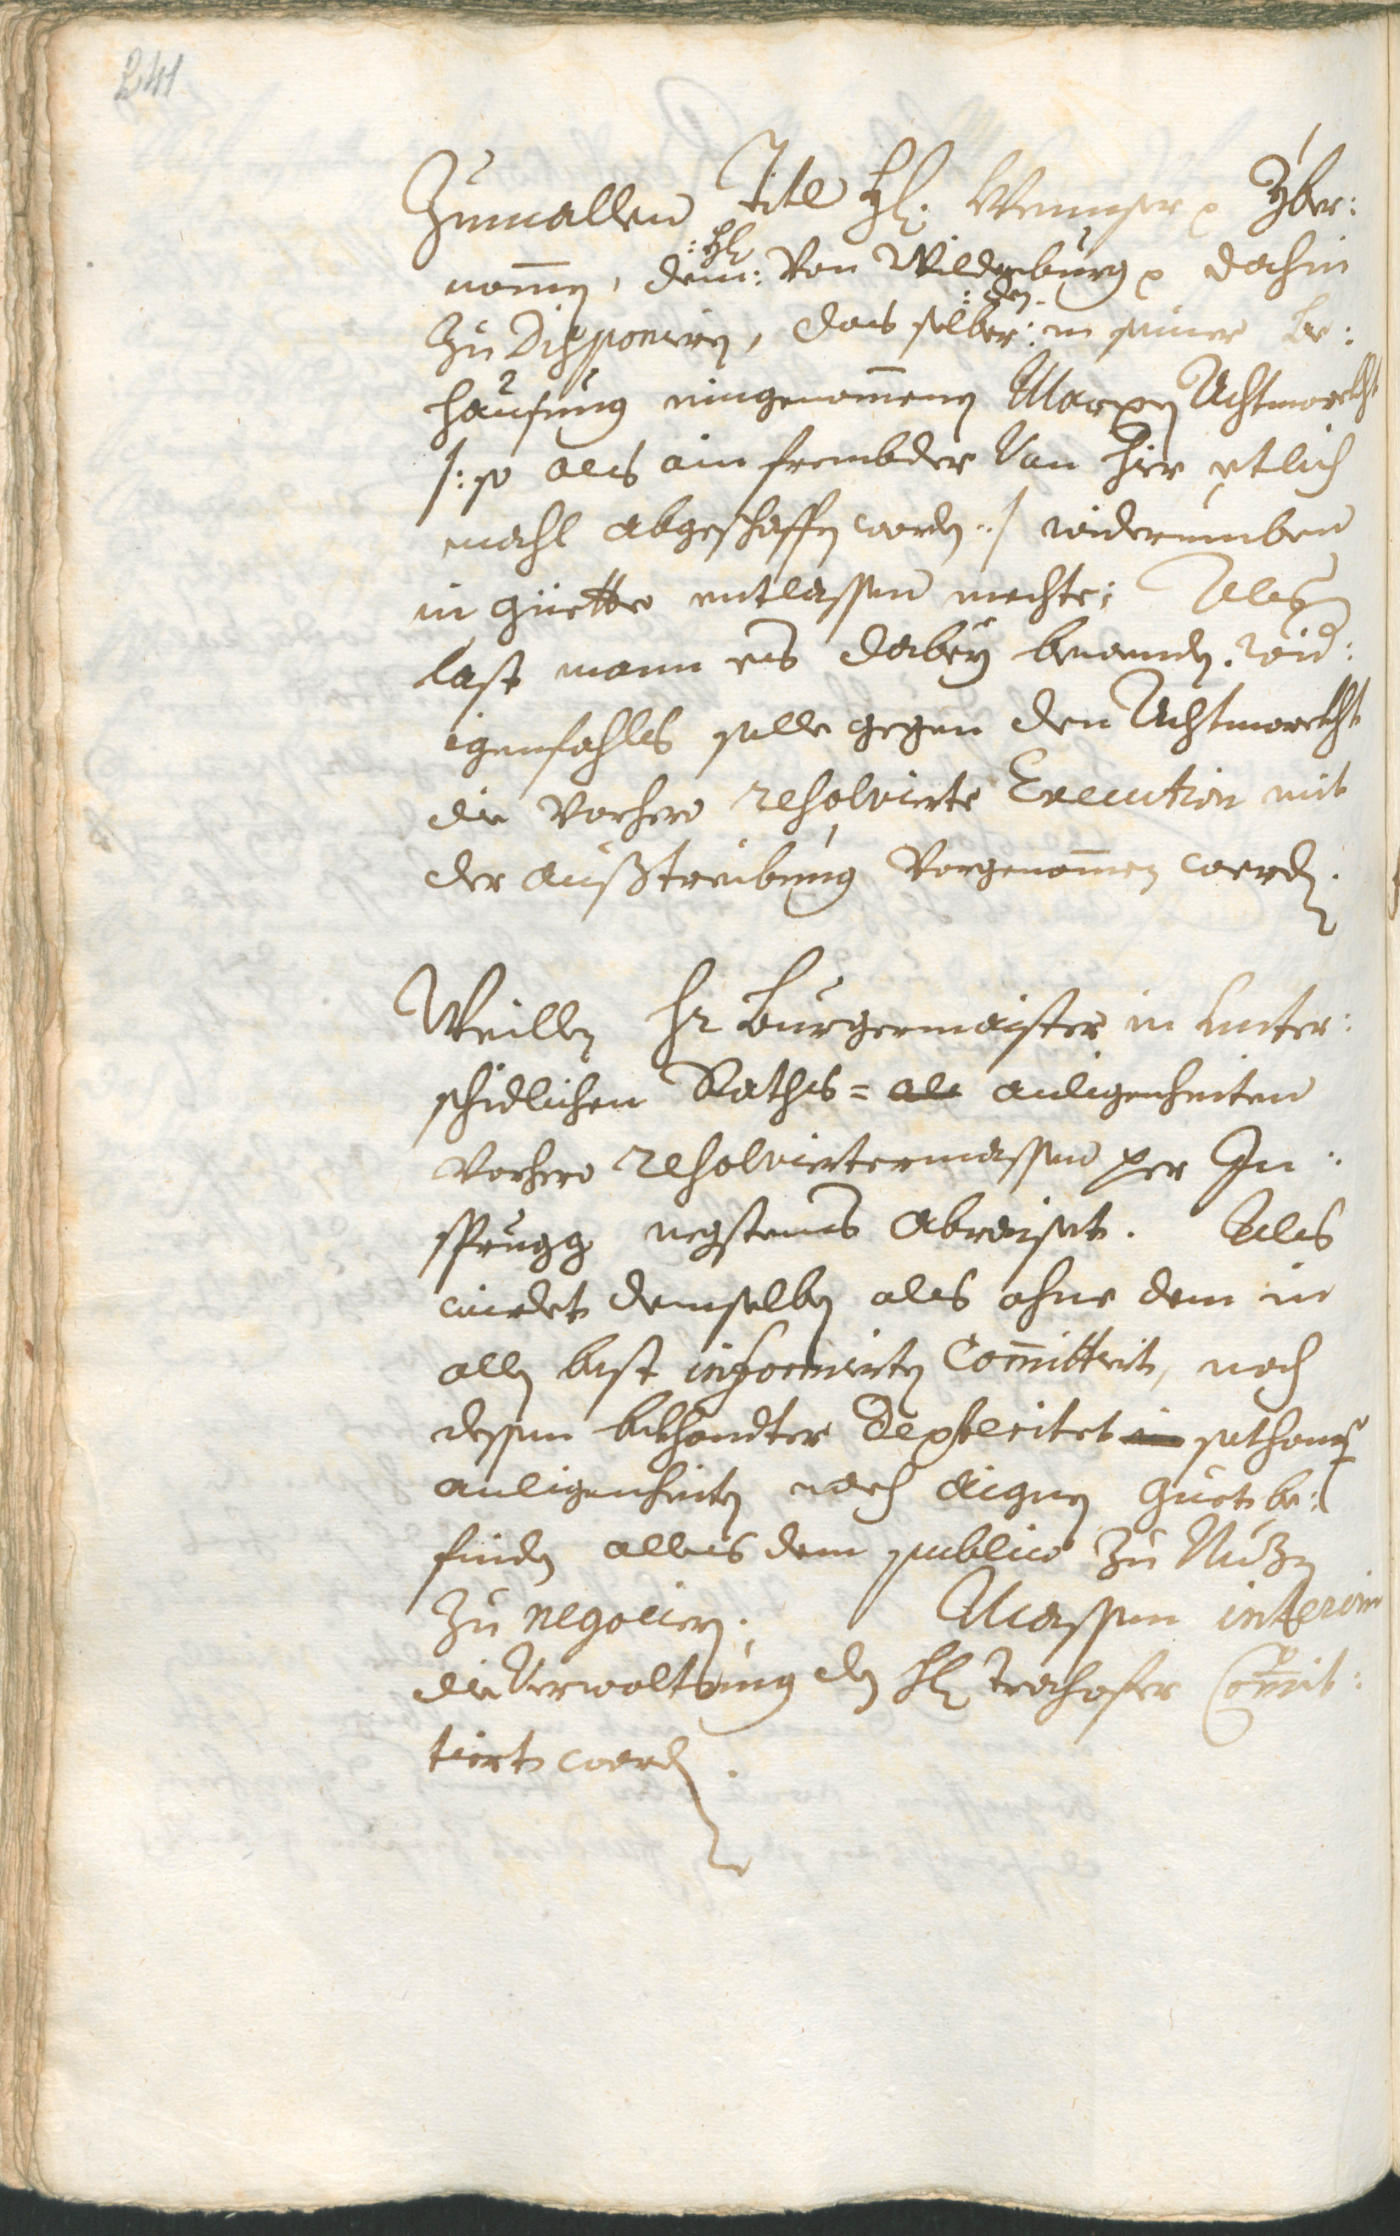 241
Zumallen Titl H: Wenser p Yber:
nomen, dem: :H: von Wildenburg p dahin
zu Disponiern, das selber: :den: in seiner be:
hausung eingenomenen Marxen Achtmarckht
/: so als ain frembder von hier etlich
mahl abgeschaffen worden :/ widerumben
in güette entlassen mechte; Als
last mann es dabey bewenden. wid:
igenfahls solle gegen den Achtmarckht
die vorhero resolvierte Execution mit
der außtreibung vorgenommen werden.
Weillen Hr Burgermaister in unter:
schidlichen Raths= als anligenheiten
vorhero resolviertermassen per In:
sprugg negstens abraiset. Als
wirdet demselben als ohne dem in
allen best informierten Committiert, nach
dessen bekhandter Dexteritet in sethanen
anligenheiten nach aignen guetbe:
finden alles dem publico zu Nuzen
zu negocieren. Massen interim
die Verwaltung den H: Trachofer Comit:
tiert werden.